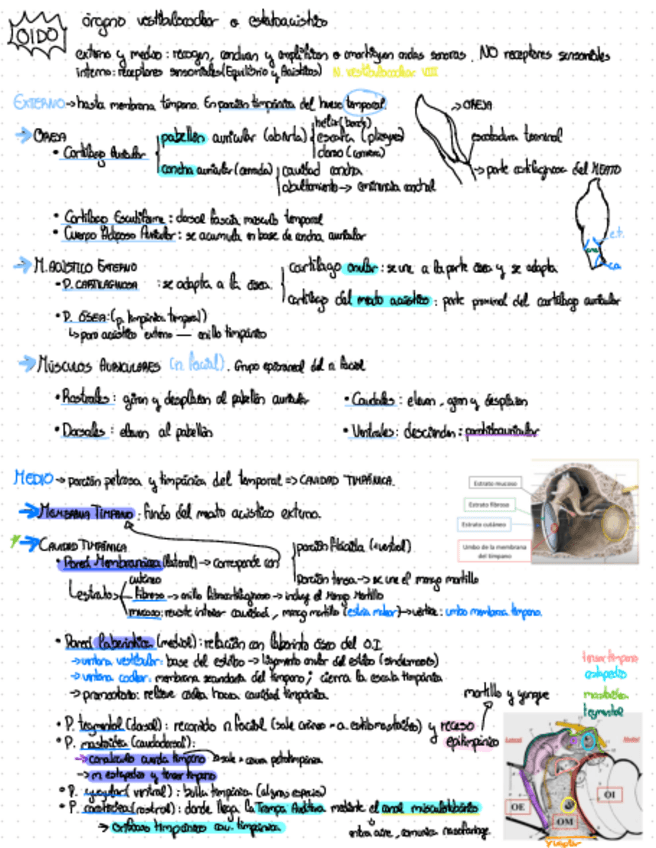 OIDO
órgano vestibulococlear o estatoacústico
externo y medio: recogen, conducen y amplifican o amortiguan ondas sonoras. NO receptores sensoriales
interno: receptores sensoriales (Equilibrio y Acústicos) N. vestibulococlear VIII
EXTERNO → hasta membrana tímpano. En porción timpánica del hueso temporal
→ OREJA
• Cartílago Auricular
pabellón auricular (abierta)
hélix (borde)
escafa (pliegues)
dorso (convexa)
concha auricular (cerrada)
cavidad concha
abultamiento → eminencia conchal
→ OREJA
escotadura terminal
→ parte cartilaginosa del MEATO
• Cartílago Escutiforme: dorsal fascia músculo temporal
• Cuerpo Adiposo Auricular: se acumula en base de concha auricular
→ M. ACÚSTICO EXTERNO
• P. CARTILAGINOSA : se adapta a la ósea
cartílago anular: se une a la parte ósea y se adapta
cartílago del meato acústico: parte proximal del cartílago auricular
• P. ÓSEA: (p. timpánica temporal)
↳ poro acústico externo — anillo timpánico
→ MÚSCULOS AURICULARES (n facial). Grupo epicraneal del n facial
• Rostrales: giran y desplazan al pabellón auricular
• Caudales: elevan, giran y desplazan
• Dorsales: elevan al pabellón
• Ventrales: descienden: parotidoauricular
MEDIO → porción petrosa y timpánica del temporal => CAVIDAD TIMPÁNICA.
→ MEMBRANA TÍMPANO: fondo del meato acústico externo.
→ CAVIDAD TIMPÁNICA
• Pared Membranosa (lateral) → corresponde con
porción fláccida (+ ventral)
porción tensa → se une el mango martillo
↳ estratos
cutáneo
fibroso → anillo fibrocartilaginoso → incluye el Mango Martillo
mucoso: reviste interior cavidad, mango martillo (estría malear) → vértice: umbo membrana tímpano.
Estrato mucoso
Estrato fibroso
Estrato cutáneo
Umbo de la membrana
del tímpano
• Pared laberíntica (medial): relación con laberinto óseo del O.I.
→ ventana vestibular: base del estribo → ligamento anular del estribo (sindesmosis)
→ ventana coclear: membrana secundaria del tímpano; cierra la escala timpánica
→ promontorio: relieve cóclea hacia cavidad timpánica.
martillo y yunque
• P. tegmental (dorsal): recorrido n facial y receso epitimpánico
• P. mastoidea (caudodorsal):
→ canalículo cuerda tímpano
→ m estapedio y tensor tímpano
• P. yugular (ventral): bulla timpánica (algunas especies)
• P. carotídea (rostral): donde llega la Trompa Auditiva mediante el canal musculotubárico
→ Orificio timpánico
entra aire, comunica nasofaringe.
tensor tímpano
estapedio
mastoidea
tegmental
Lateral
Medial
OE
OM
OI